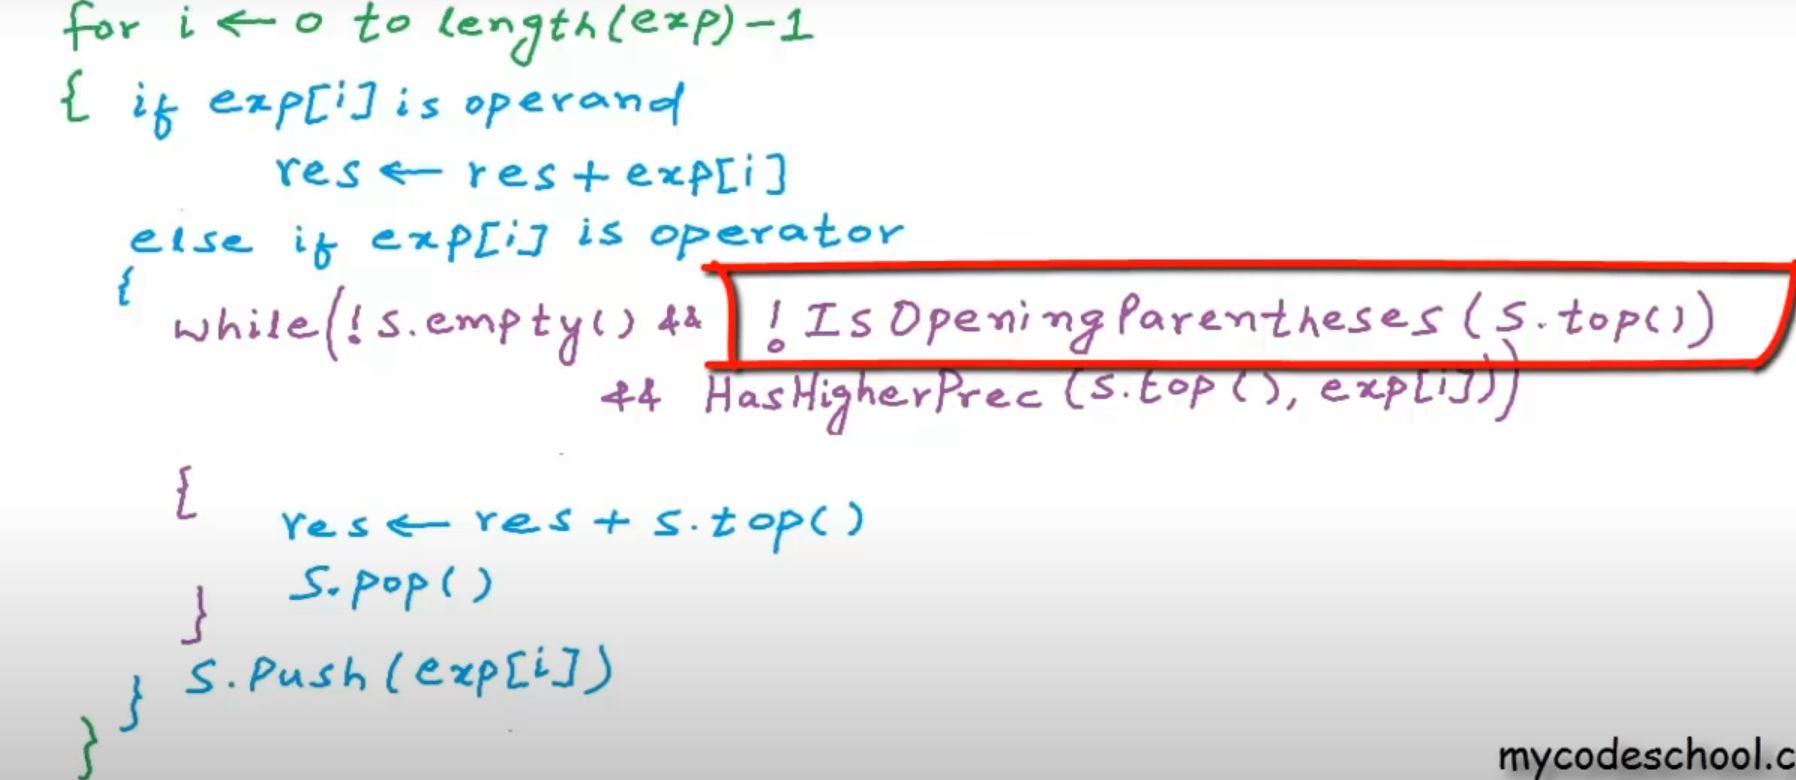 for i ← 0 to length(exp)-1
{ if exp[i] is operand
res ← res + exp[i]
else if exp[i] is operator
{
while(!s.empty() && !IsOpeningParentheses(s.top())
&& HasHigherPrec(s.top(), exp[i]))
{
res ← res + s.top()
s.pop()
}
s.push(exp[i])
}
}
mycodeschool.c